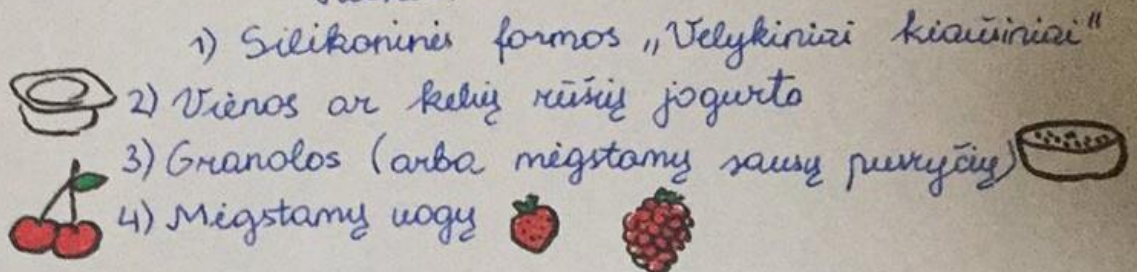 1) Silikoninės formos „Velykiniai kiaušiniai“
2) Vienos ar kelių rūšių jogurto
3) Granolos (arba mėgstamų sausų pusryčių)
4) Mėgstamų uogų